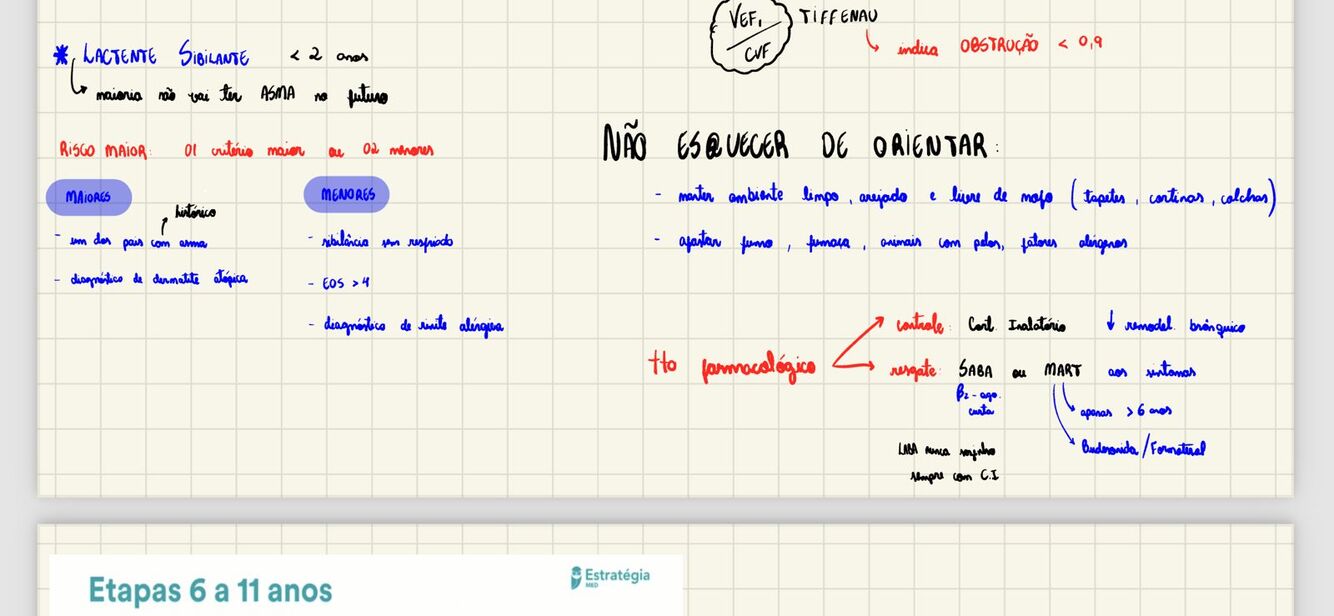 * LACTENTE SIBILANTE < 2 anos
maioria não vai ter ASMA no futuro
RISCO MAIOR: 01 critério maior ou 02 menores
MAIORES
histórico
- um dos pais com asma
- diagnóstico de dermatite atópica
MENORES
- sibilância sem resfriado
- EOS > 4
- diagnóstico de rinite alérgica
VEF₁
CVF
TIFFENAU
indica OBSTRUÇÃO < 0,9
NÃO ESQUECER DE ORIENTAR:
- manter ambiente limpo, arejado e livre de mofo (tapetes, cortinas, colchas)
- afastar fumo, fumaça, animais com pelos, fatores alérgenos
tto farmacológico
controle: Cort. Inalatório ↓ remodel. brônquico
resgate: SABA ou MART aos sintomas
β₂-ago. curta
apenas > 6 anos
Budesonida/Formoterol
LABA nunca sozinho
sempre com C.I
Etapas 6 a 11 anos
Estratégia
MED